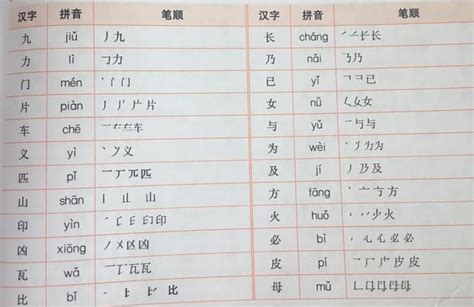 汉字 拼音 笔顺 汉字 拼音 笔顺
九 jiǔ 丿九 长 cháng 长长
力 lì 𠃌力 乃 nǎi 𠄎乃
门 mén 丶门 已 yǐ 已
片 piàn 丿片 女 nǚ 𡿨女女
车 chē 一车 与 yǔ 一与与
义 yì 丶义 为 wèi 丶丿为为
匹 pǐ 一丆兀匹 及 jí 丿乃及
山 shān 丨山 山 方 fāng 丶亠方方
印 yìn 印 火 huǒ 火
凶 xiōng 丿㐅区凶 必 bì 心心必必
瓦 wǎ 一瓦瓦 皮 pí 皮皮
比 bǐ 比 母 mǔ 母母母